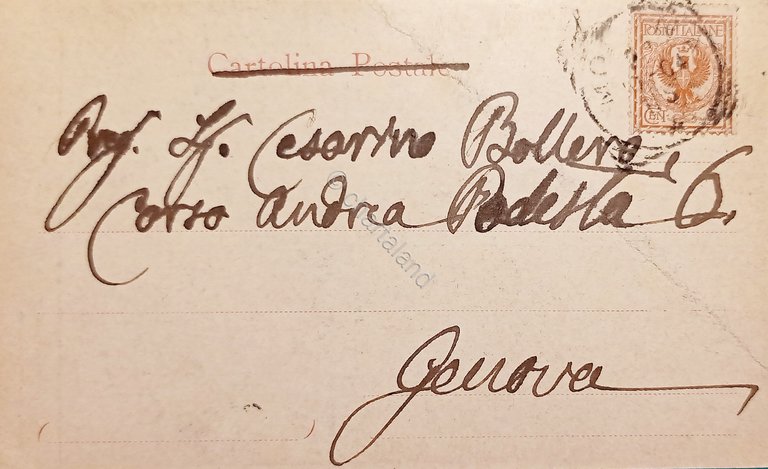 Cartolina Postale
POSTE ITALIANE
CEN
Cesarino Bollero,
Corso Andrea Podesta 6,
Genova
©cartaland